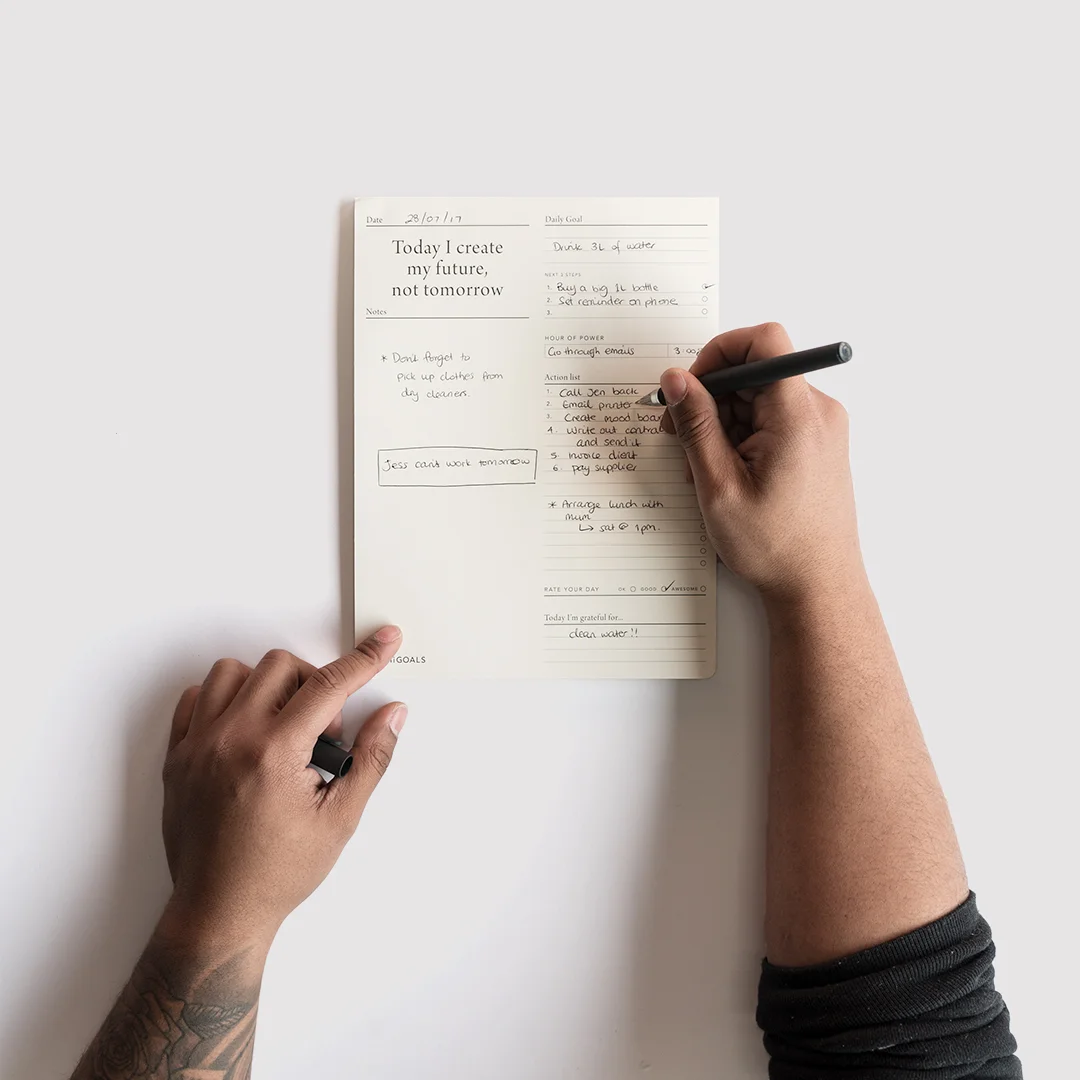 Date 28/07/17
Today I create
my future,
not tomorrow
Notes
* Don't forget to
pick up clothes from
dry cleaners.
Jess can't work tomorrow
GOALS
Daily Goal
Drink 3L of water
NEXT 3 STEPS
1. Buy a big 1L bottle
2. Set reminder on phone
3.
HOUR OF POWER
Go through emails 3:00
Action list
1. Call Jen back
2. Email printer
3. Create mood boar
4. Write out contra
and send it
5. invoice client
6. pay supplier
* Arrange lunch with
mum
↳ sat @ 1pm.
RATE YOUR DAY OK GOOD AWESOME
Today I'm grateful for...
clean water!!